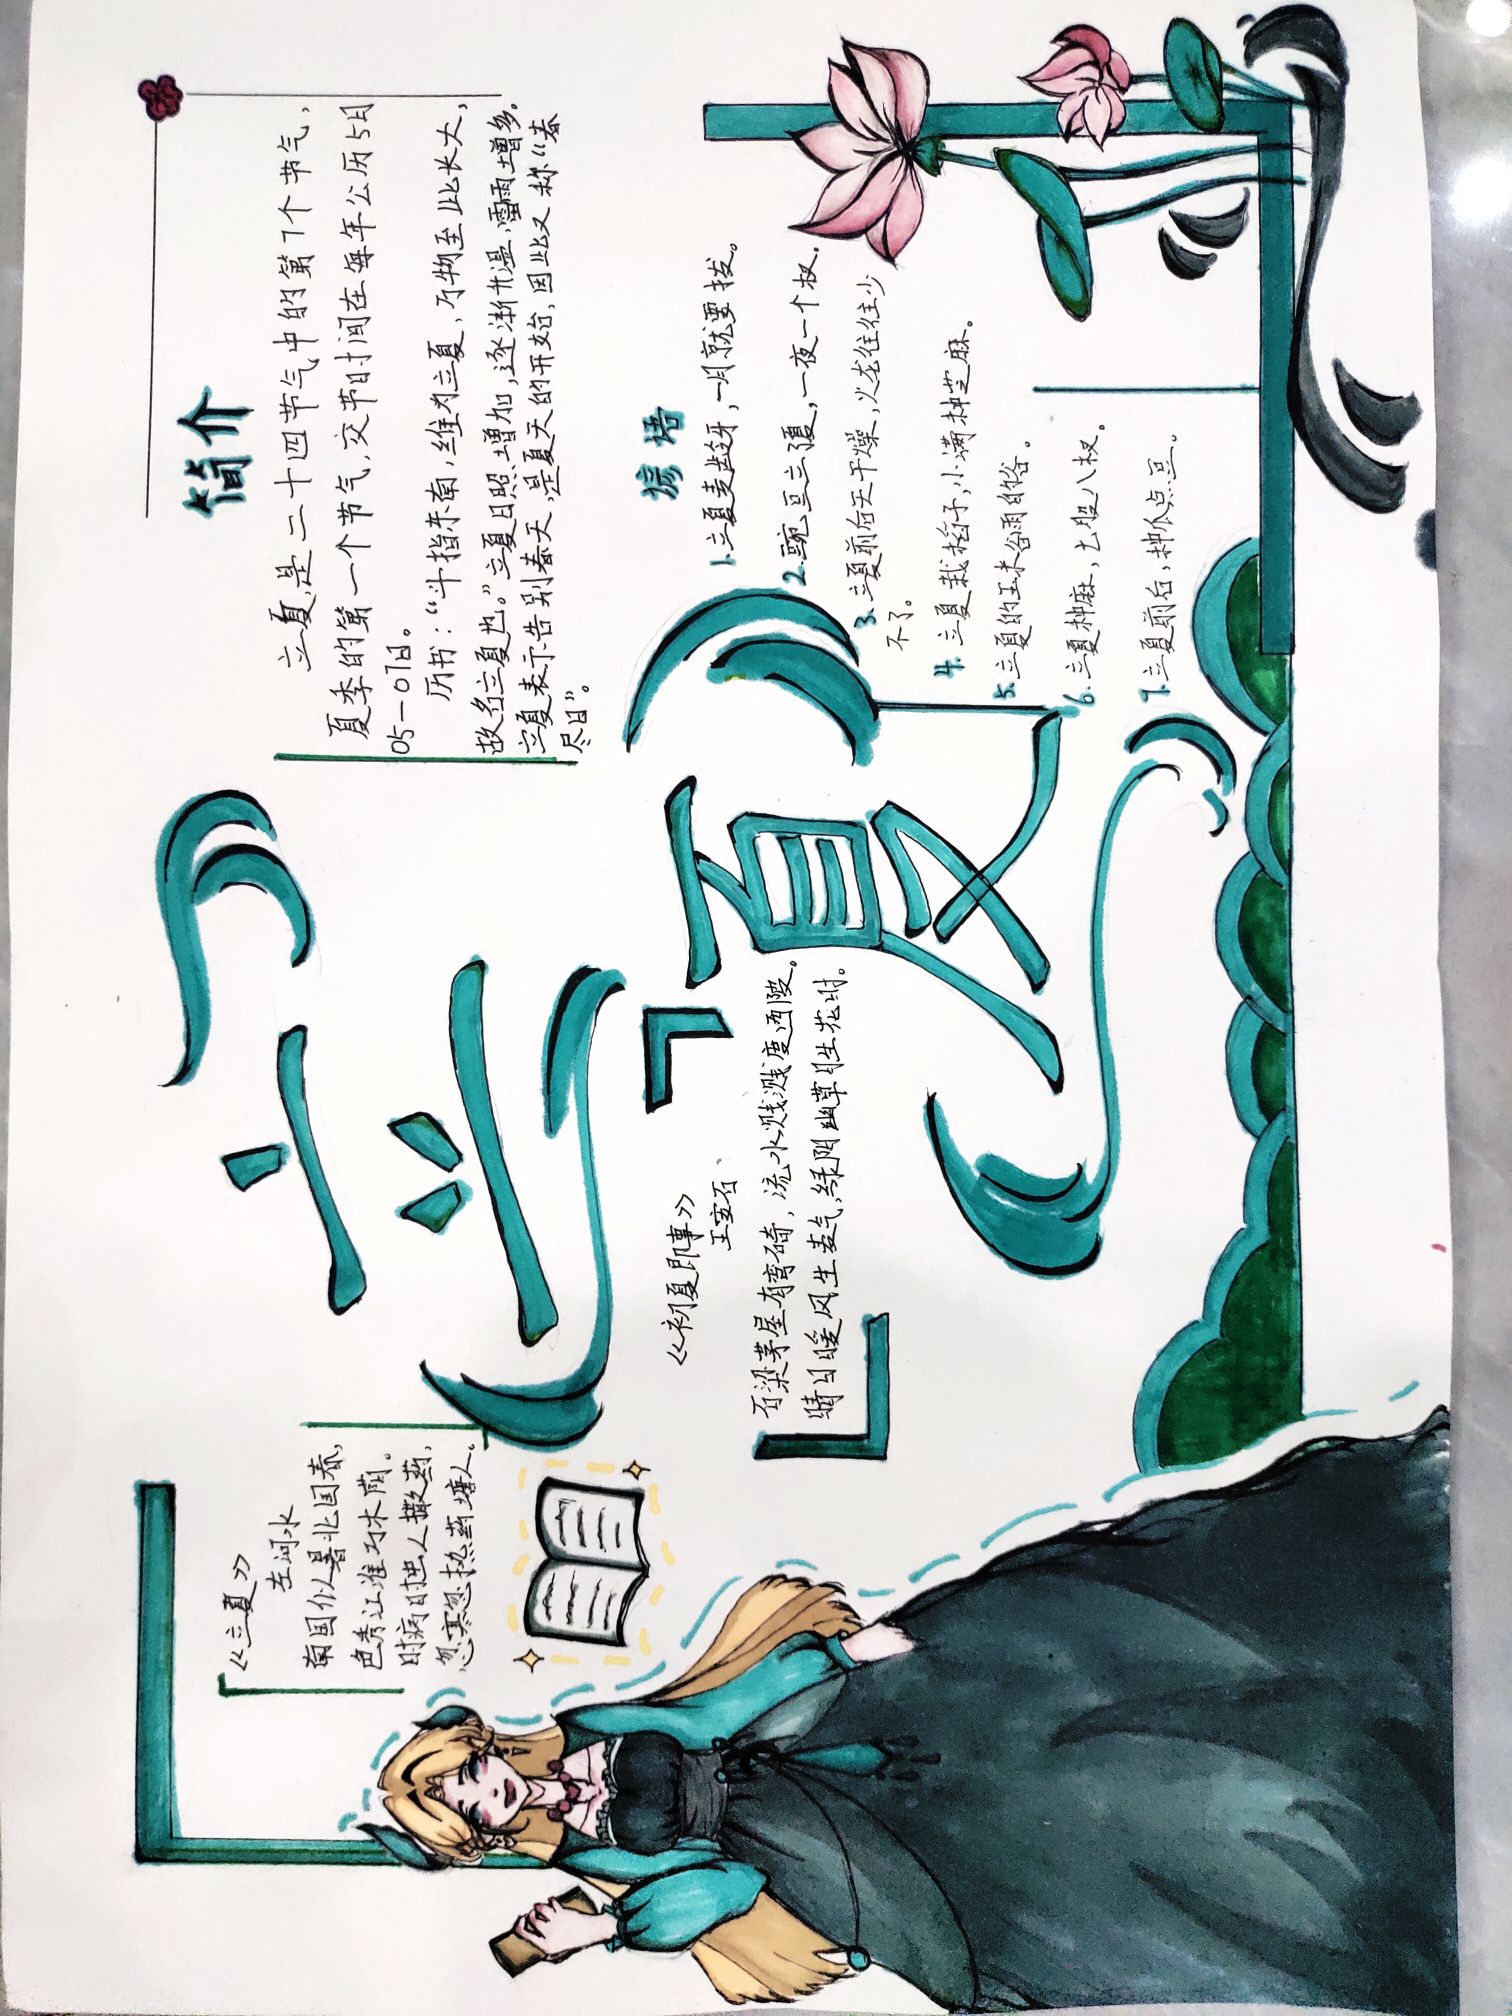 立夏
《立夏》
左河水
南国似暑北国春，
色秀江淮万木荫。
时病时虫人撒药，
忽寒忽热药搪人。
《初夏即事》
王安石
石梁茅屋有弯碕，流水溅溅度西陂。
晴日暖风生麦气，绿阴幽草胜花时。
简介
立夏，是二十四节气中的第7个节气，
夏季的第一个节气，交节时间在每年公历5月
05-07日。
历书：“斗指东南，维为立夏，万物至此长大，
故名立夏也。”立夏日照增加，逐渐升温，雷雨增多。
立夏表示告别春天，是夏天的开始，因此又称“春
尽日”。
谚语
1.立夏麦龇牙，一月就要拔。
2.豌豆立了夏，一夜一个杈。
3.立夏前后天干燥，火龙往往少
不了。
4.立夏栽稻子，小满种芝麻。
5.立夏的玉米谷雨的谷。
6.立夏种麻，七股八杈。
7.立夏前后，种瓜点豆。